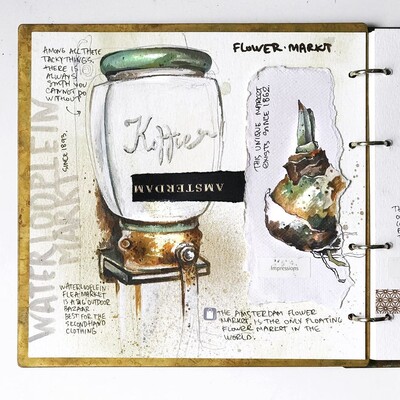 AMONG ALL THESE
TACKY THINGS.
THERE IS
ALWAYS
STH YOU
CANNOT DO
WITHOUT
SINCE 1893.
WATERLOOPLEIN
MARKT
Koffie
AMSTERDAM
WATERLOOPLEIN
FLEAMARKET
IS A BIG OUTDOOR
BAZAAR
BEST FOR THE
SECONDHAND
CLOTHING
FLOWER·MARKT
THIS UNIQUE MARKET
EXISTS SINCE 1862.
Impressions
THE AMSTERDAM FLOWER
MARKET, IS THE ONLY FLOATING
FLOWER MARKET IN THE
WORLD.